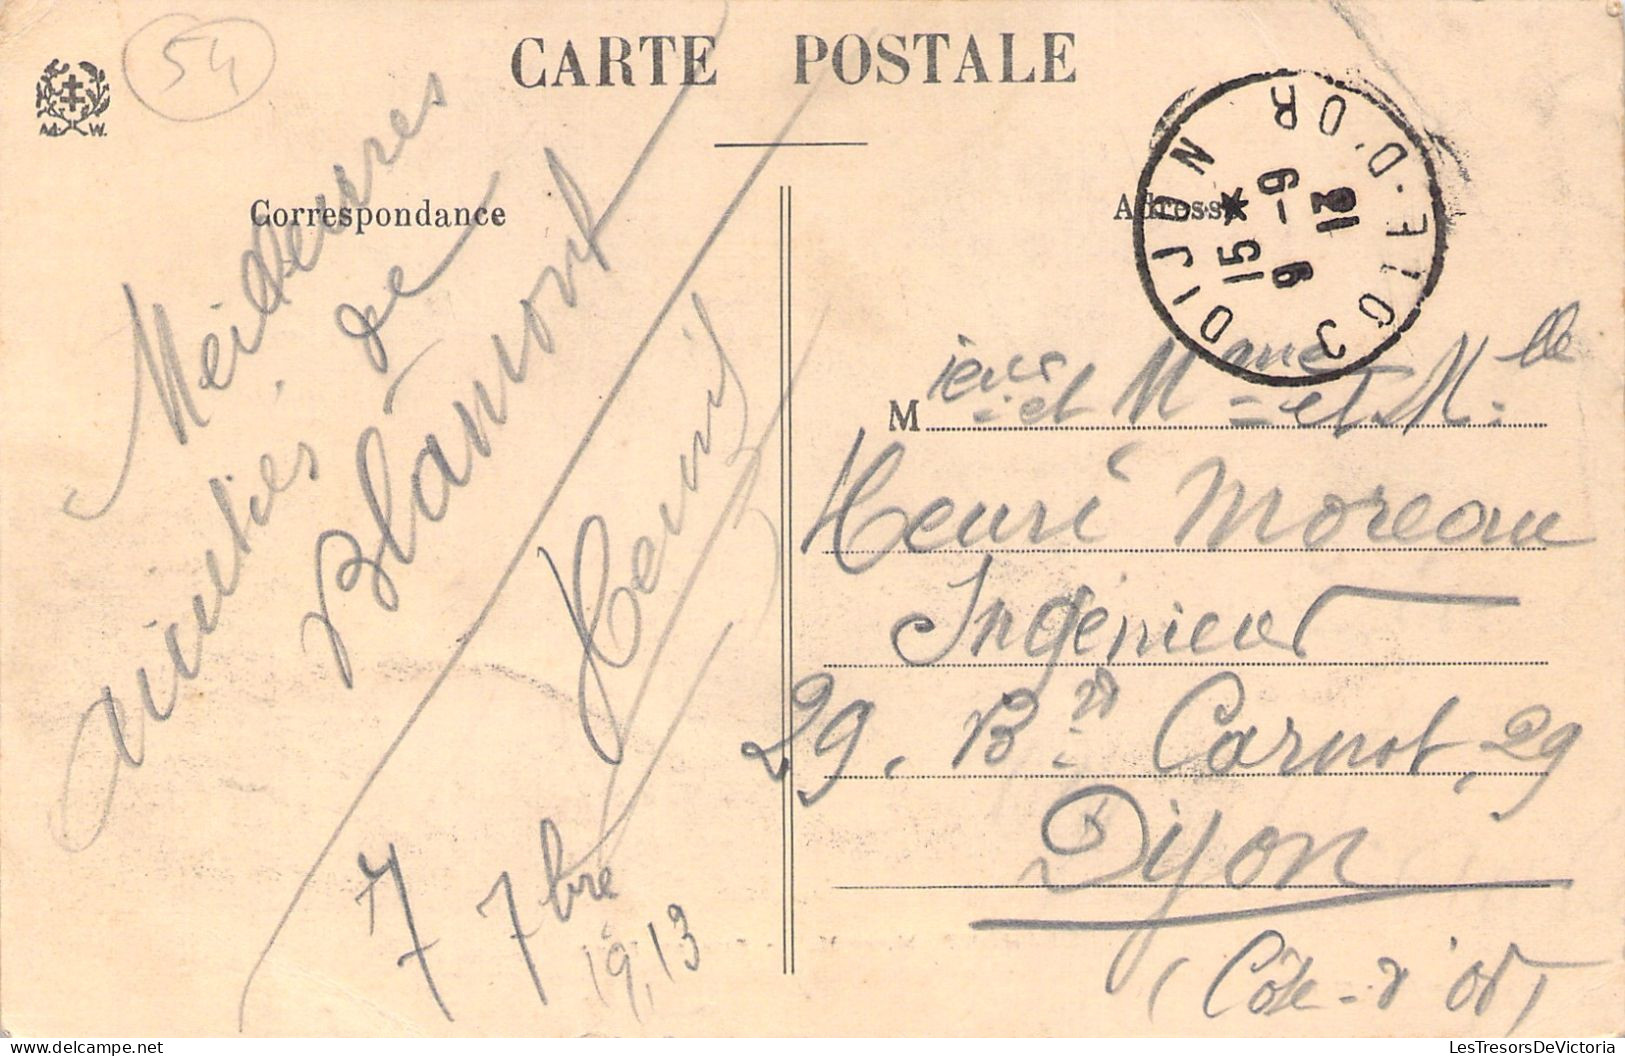 54
CARTE POSTALE
A W.
Correspondance
Meilleures
amitiés de
Blâmont
7 7bre
1913
Adresse
DIJON
COTE-D'OR
15 *
9-9
13
M ieur et Mme et Mlle
Henri Moreau
Ingénieur
29, Bd Carnot, 29
Dijon
(Côte-d'or)
LesTresorsDeVictoria